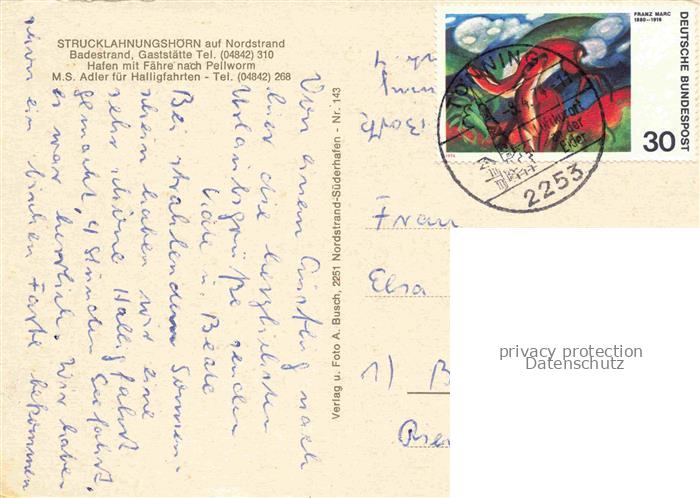 STRUCKLAHNUNGSHÖRN auf Nordstrand
Badestrand, Gaststätte Tel. (04842) 310
Hafen mit Fähre nach Pellworm
M.S. Adler für Halligfahrten - Tel. (04842) 268
Von einem Ausflug nach
hier die herzlichsten
Urlaubsgrüße senden
u. Beate
Bei strahlendem Sonnen-
schein haben wir eine
sehr schöne Hallig fahrt
gemacht, 4 Stunden Seefahrt,
es war herrlich. Wir haben
ein bischen Farbe bekommen
Verlag u. Foto A. Busch, 2251 Nordstrand-Süderhafen - Nr. 143
FRANZ MARC
1880-1916
DEUTSCHE BUNDESPOST
30
1974
TÖNNING
Luftkurort
an der
Eider
2253
Frau
Elsa
1) B
privacy protection
Datenschutz